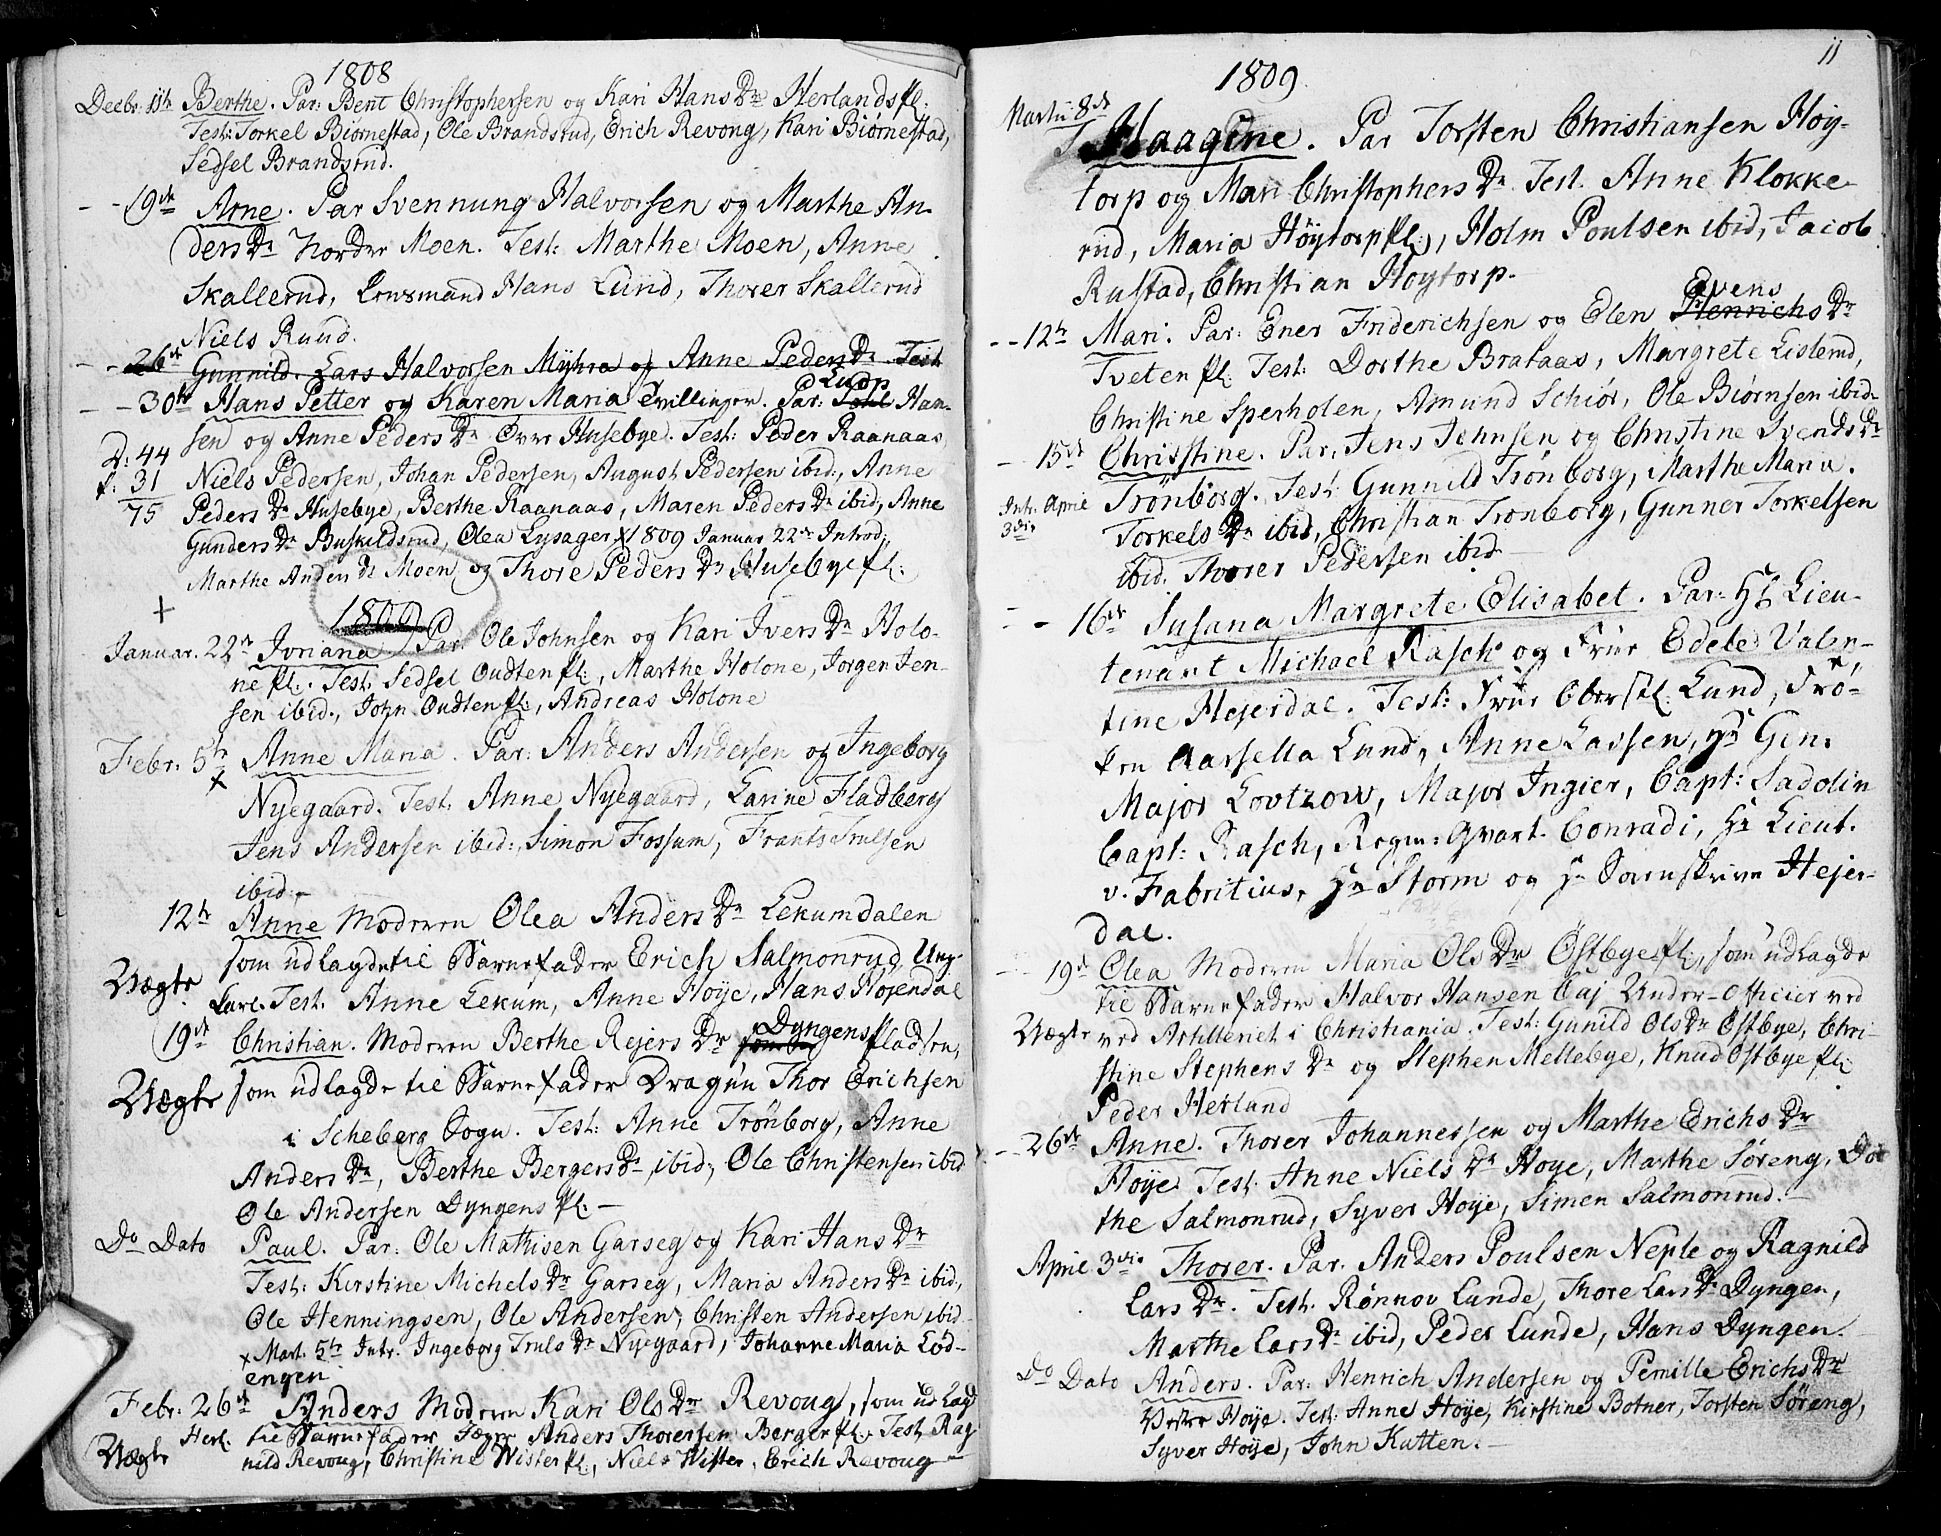 1808
Decbr. 11te Berthe. Par: Bent Christophersen og Kari Hans Dr Herlands pl.
Test: Torkel Biørnestad, Ole Brandsrud, Erich Revoug, Kari Biørnestad,
Sedsel Brandsrud.
- - 19de Arne. Par Svennung Halvorsen og Marthe An-
ders Dr Nordre Moen. Test: Marthe Moen, Anne
Skallerud, Lensmand Hans Lund, Thorer Skallerud
Niels Ruud.
- - 26de Gunnild. Lars Halvorsen Myhra og Anne Peders Dr Test
Ludv
- - 30te Hans Petter og Karen Maria Tvillinger. Par: Han-
sen og Anne Peders Dr Øvre Husebye. Test: Peder Raanaas
D: 44
Niels Pedersen, Johan Pedersen, August Pedersen ibid:, Anne
f: 31
75 Peders Dr Husebye, Berthe Raanaas, Maren Peders Dr ibid, Anne
Gunders Dr Buskildsrud, Olea Lysager x 1809 Januar 22de Introd:
Marthe Anders Dr Moen og Thore Peders Dr Husebye pl:
+ 1809
Januar. 22de Ivriana Par: Ole Johnsen og Kari Ivers Dr Holo-
ne pl:. Test: Sedsel Oudten pl:, Marthe Holone, Jørgen Jen-
sen ibid., John Oudten pl:, Andreas Holone
Febr: 5te Anne Maria. Par: Anders Andersen og Ingeborg
x
Nyegaard. Test: Anne Nyegaard, Karine Fladberg
Jens Andersen ibid:, Simon Fossum, Frants Trulsen
ibid.-
12te Anne Moderen Olea Anders Dr Lekumdalen
som udlagde til Barnefader Erich Salmonrud Ung-
Uægte
karl. Test: Anne Lekum, Anne Høye, Hans Højendal
19de Christian. Moderen Berthe Rejers Dr Dyngens pladsen,
Uægte som udlagde til Barnefader Dragun Thor Erichsen
i Scheberg Sogn. Test: Anne Trönborg, Anne
Anders Dr, Berthe Bergers Dr ibid:, Ole Christensen ibid
Ole Andersen Dyngens pl. -
Do Dato Paul. Par: Ole Mathisen Garseg og Kari Hans Dr
Test: Kirstine Michels Dr Garseg, Maria Anders Dr ibid,
Ole Henningsen, Ole Andersen, Christen Andersen ibid
x Mart. 5te Intr. Ingeborg Truls Dr Nyegaard, Johanne Maria Lød-
engen
Febr: 26de Anders Moderen Kari Ols Dr Revoug, som udlag
til Barnefader Jæger Anders Thoresen Berger pl:. Test Rag
Uægte nild Revoug, Christine Wister pl:, Niels Wister, Erich Revoug

11
1809.
Martii 8de
Haagine. Par Torsten Christiansen Høy-
torp og Mari Christophers Dr Test. Anne Klokke-
rud, Maria Höytorp pl:, Holm Poulsen ibid, Jacob
Rustad, Christian Høytorp.
Evens
- - 12te Mari. Par: Ener Friderichsen og Elen Henrichs Dr
Tveten pl: Test: Dorthe Brataas, Margrete Lislerud,
Christine Sperholen, Amund Schiør, Ole Biørnsen ibid.
- 15de Chrisstine. Par. Jens Johnsen og Christine Svends Dr
Intr. April
3die
Trönborg. Test: Gunnild Trönborg, Marthe Maria.
Torkels Dr ibid, Christian Tronborg, Gunner Torkelsen
ibid. Thorer Pedersen ibid
- - 16de Susana Margrete Elisabet. Par: Hr Lieu-
tenant Michael Rasch og Frue Edele Valen-
tine Hejerdal. Test: Frue Oberstl: Lund, Frø-
ken Lund, Anne Lassen, Hr Gen.
Major Lovtzow, Major Ingier, Capt: Sadolin
Capt: Rasch, Regm: Qvart. Conradi, Hr Lieut.
v. Fabritius, Hr Storm og Hr Sorenskriver Hejer-
dal.
- - 19de Olea Moderen Maria Ols Dr Østbye pl:, som udlagde
til Barnefader Halvor Hansen Caj Under-Officier ved
Uægte ved Artilleriet i Christiania. Test: Gunild Ols Dr Østbye, Chri-
stine Stephens Dr og Stephen Mellebye, Knud Østbye pl:
Peder Herland
- - 26de Anne. Thorer Johannessen og Marthe Erichs Dr
Høye Test. Anne Niels Dr Høye, Marthe Søreng, Dor
the Salmonrud, Syver Høye, Simen Salmonrud. -
April 3die Thorer. Par. Anders Poulsen Neple og Ragnild
Lars Dr. Test. Rønnov Lunde, Thore Lars Dr Dyngen,
Marthe Lars Dr ibid, Peder Lunde, Hans Dyngen.
Do Dato Anders. Par. Henrich Andersen og Pernille Erichs Dr
Vestre Høye. Test: Anne Høye, Kirstine Botner, Torsten Søreng,
Syver Høye, John Kutten. -